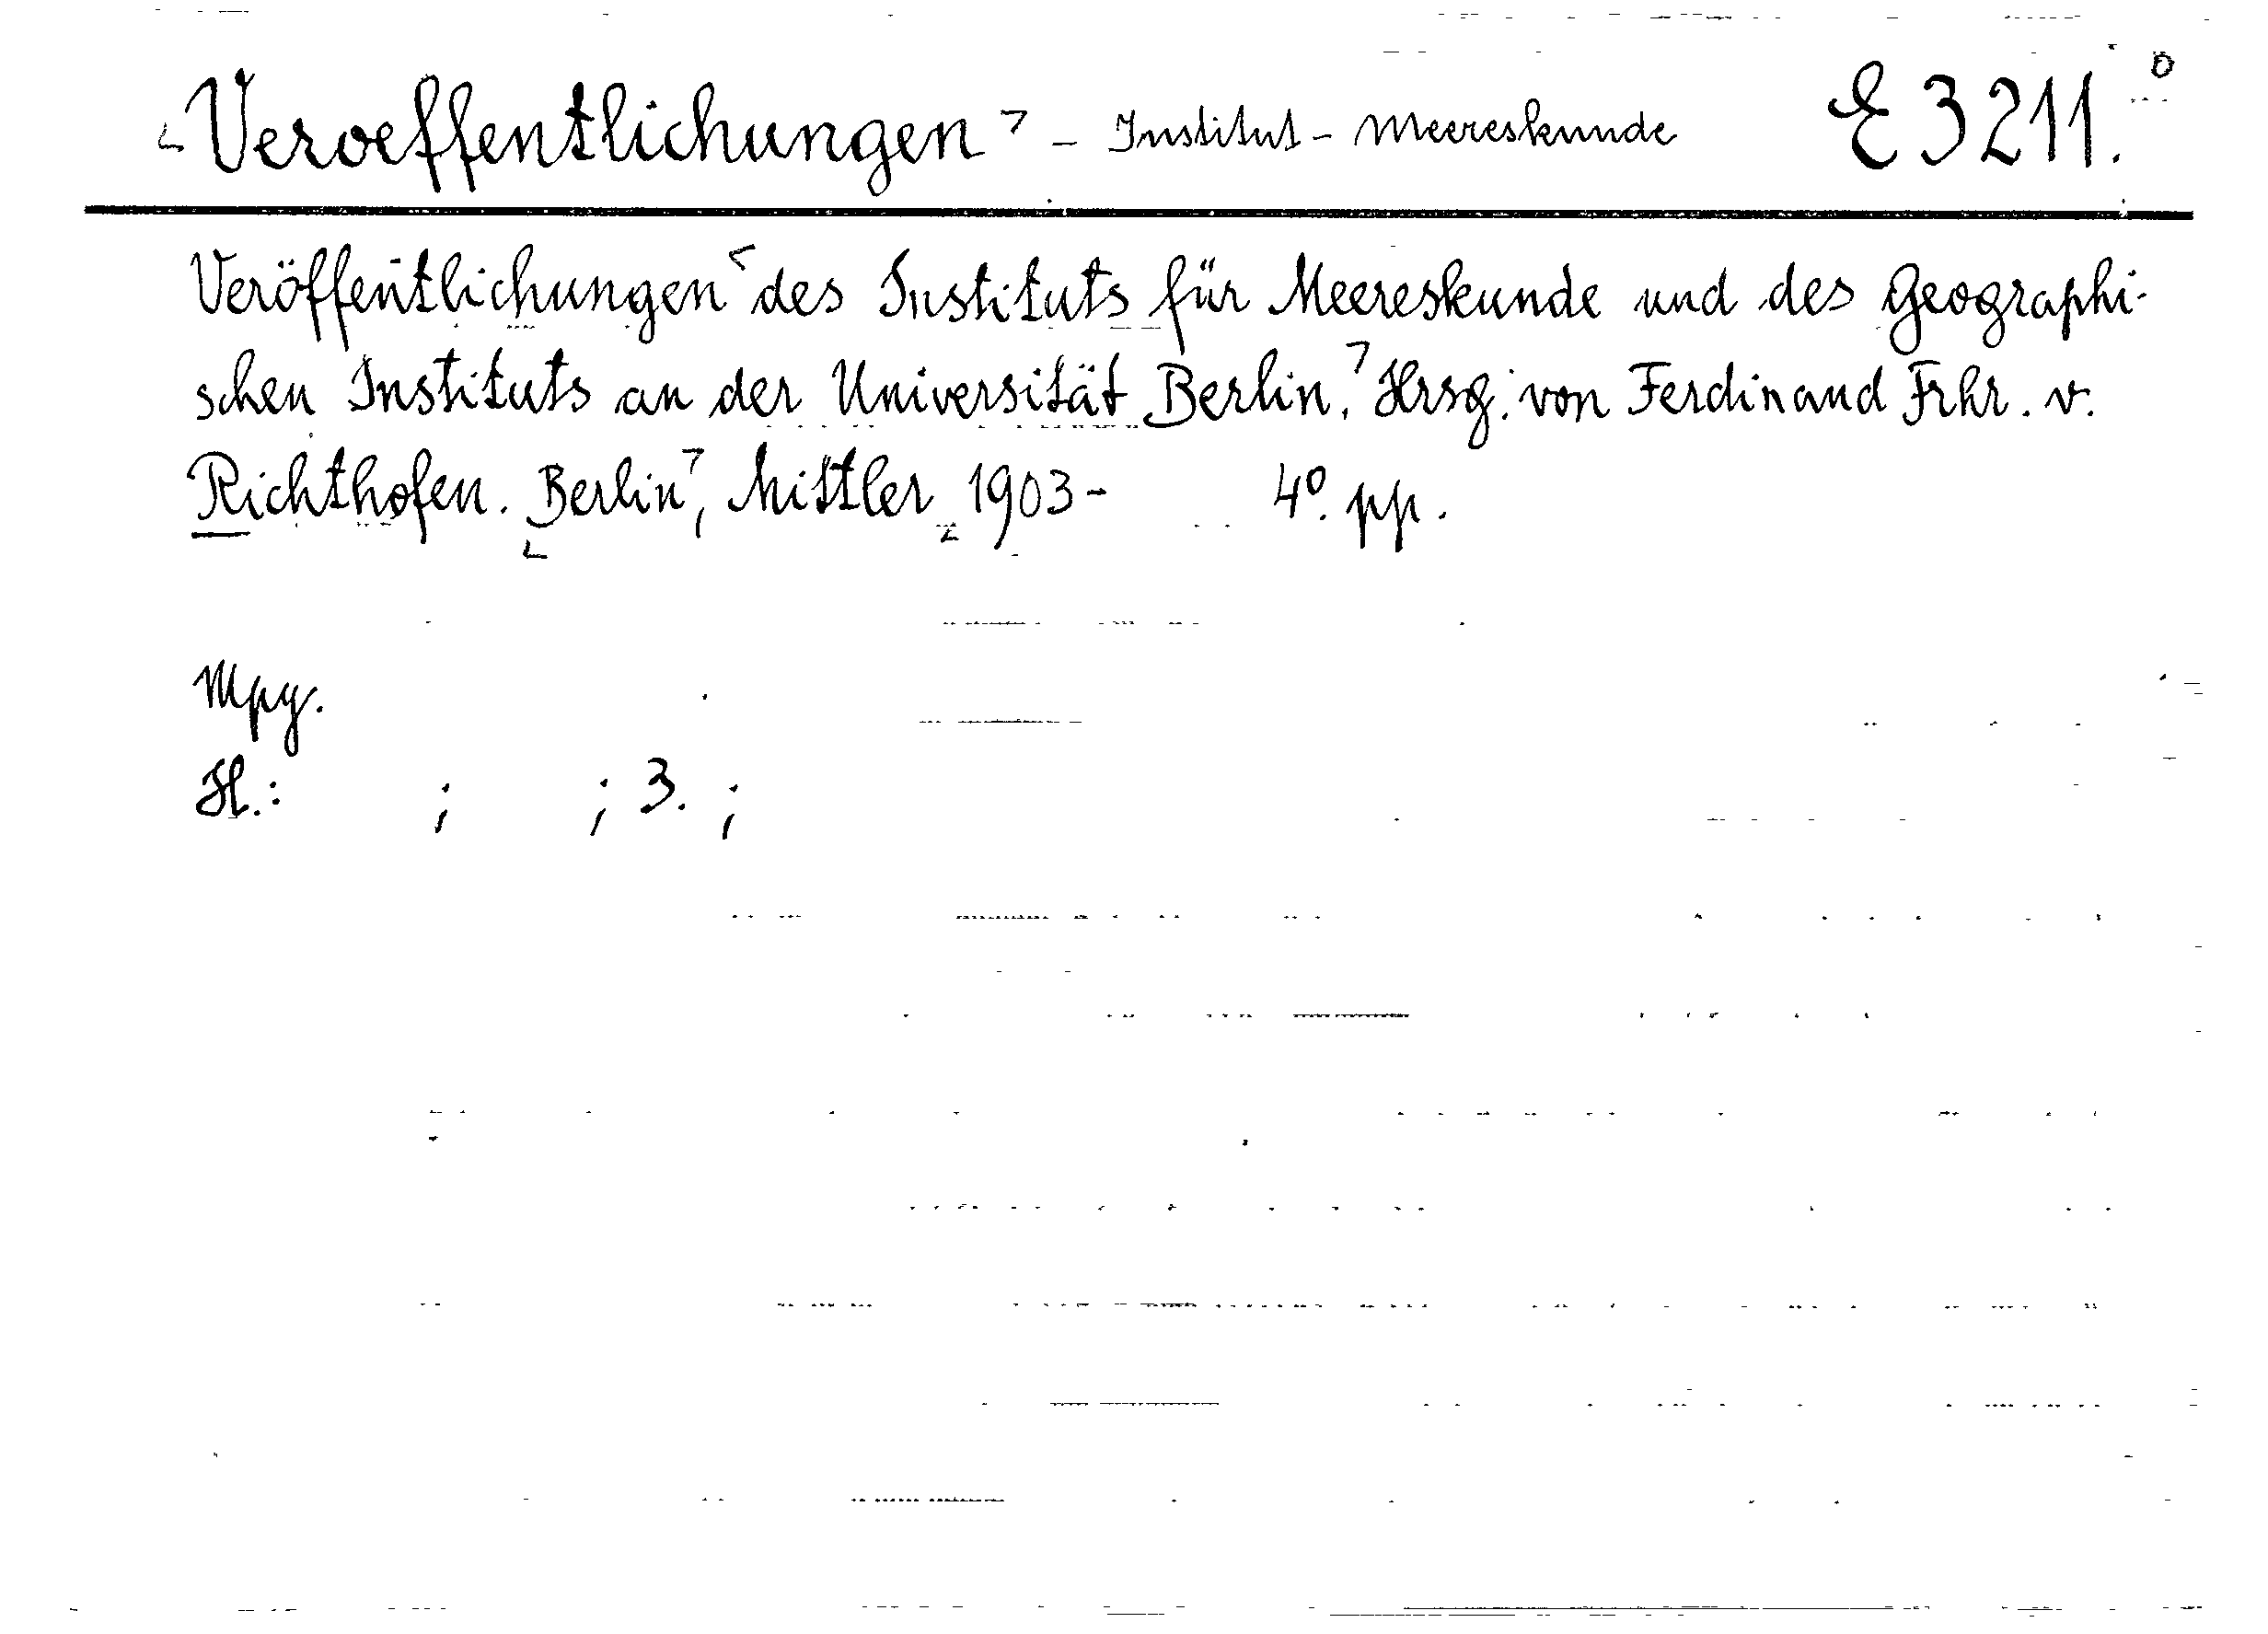 Veroeffentlichungen - Institut - Meereskunde E 3211.°
Veröffentlichungen des Instituts für Meereskunde und des Geographi-
schen Instituts an der Universität Berlin. Hrsg. von Ferdinand Frhr. v.
Richthofen. Berlin, Mittler 1903- 4°. pp.
Mpy.
H.: ; ; 3. ;